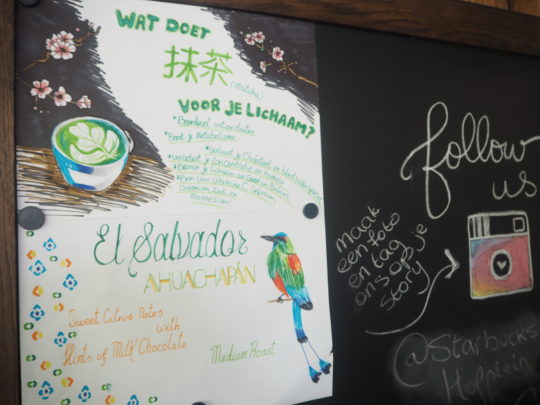 WAT DOET
抹茶
(matcha)
VOOR JE LICHAAM?
* Boordevol antioxidanten
* Boost je metabolisme
* Verlaagt je Cholesterol
* Verbetert je concentratie en
* je lichaam en
* Rijk aan vitamine C, Selenium,
Chromium, Zink en
Magnesium!
El Salvador
AHUACHAPÁN
Sweet Citrus Notes
with
Hints of Milk Chocolate
Medium Roast
follow
us
maak
een foto
en tag
ons op je
story
@Starbucks
Hofplein